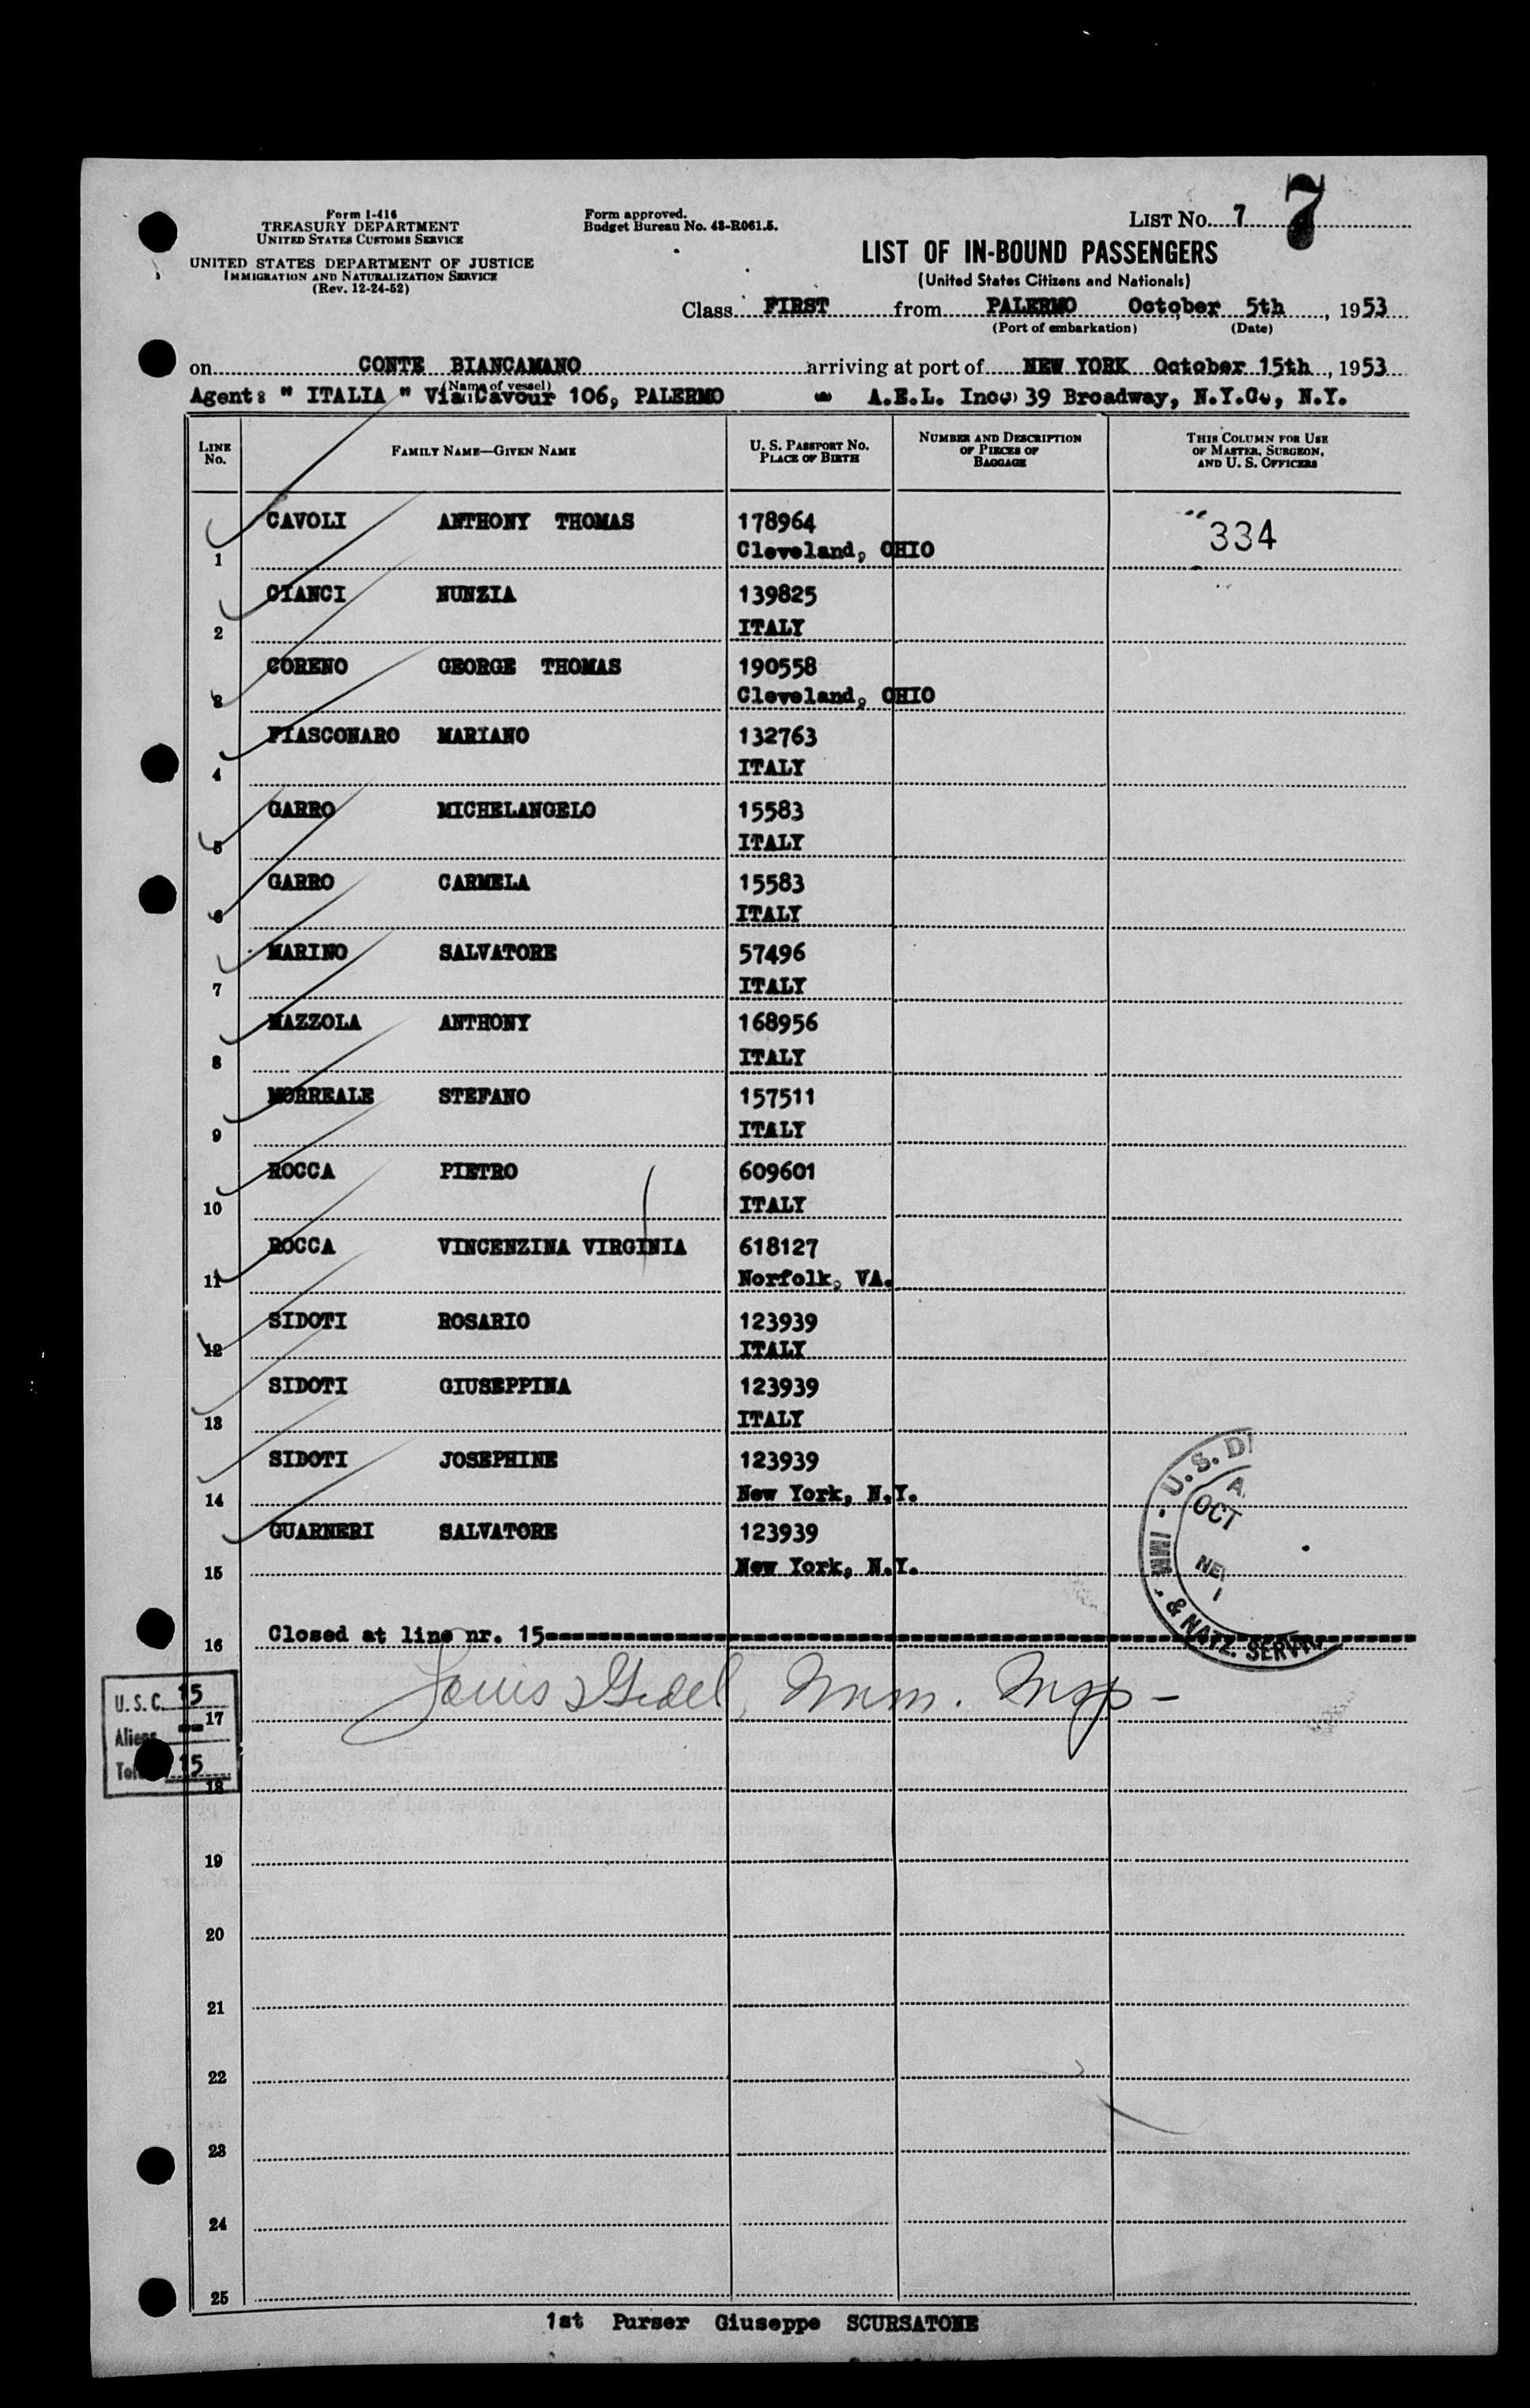 Form I-416
TREASURY DEPARTMENT
UNITED STATES CUSTOMS SERVICE
UNITED STATES DEPARTMENT OF JUSTICE
IMMIGRATION AND NATURALIZATION SERVICE
(Rev. 12-24-52)
Form approved.
Budget Bureau No. 43-R061.5.
LIST No. 7 7
LIST OF IN-BOUND PASSENGERS
(United States Citizens and Nationals)
Class FIRST from PALERMO October 5th, 1953
(Port of embarkation) (Date)
on CONTE BIANCAMANO arriving at port of NEW YORK October 15th, 1953
(Name of vessel)
Agent: " ITALIA " Via Cavour 106, PALERMO A.E.L. Inc. 39 Broadway, N.Y.C., N.Y.
LINE No. FAMILY NAME—GIVEN NAME U. S. PASSPORT No. PLACE OF BIRTH NUMBER AND DESCRIPTION OF PIECES OF BAGGAGE THIS COLUMN FOR USE OF MASTER, SURGEON, AND U. S. OFFICERS
CAVOLI ANTHONY THOMAS 178964 334
1 Cleveland, OHIO
CIANCI NUNZIA 139825
2 ITALY
CORENO GEORGE THOMAS 190558
3 Cleveland, OHIO
FIASCONARO MARIANO 132763
4 ITALY
GARRO MICHELANGELO 15583
5 ITALY
GARRO CARMELA 15583
6 ITALY
MARINO SALVATORE 57496
7 ITALY
MAZZOLA ANTHONY 168956
8 ITALY
MORREALE STEFANO 157511
9 ITALY
ROCCA PIETRO 609601
10 ITALY
ROCCA VINCENZINA VIRGINIA 618127
11 Norfolk, VA.
SIDOTI ROSARIO 123939
12 ITALY
SIDOTI GIUSEPPINA 123939
13 ITALY
SIDOTI JOSEPHINE 123939
14 New York, N.Y.
GUARNERI SALVATORE 123939
15 New York, N.Y.
U. S. D
OCT
IMM. & NATZ. SERVI
16 Closed at line nr. 15
Louis
U. S. C. 15
17
Aliens
15
18
19
20
21
22
23
24
25
1st Purser Giuseppe SCURSATONE